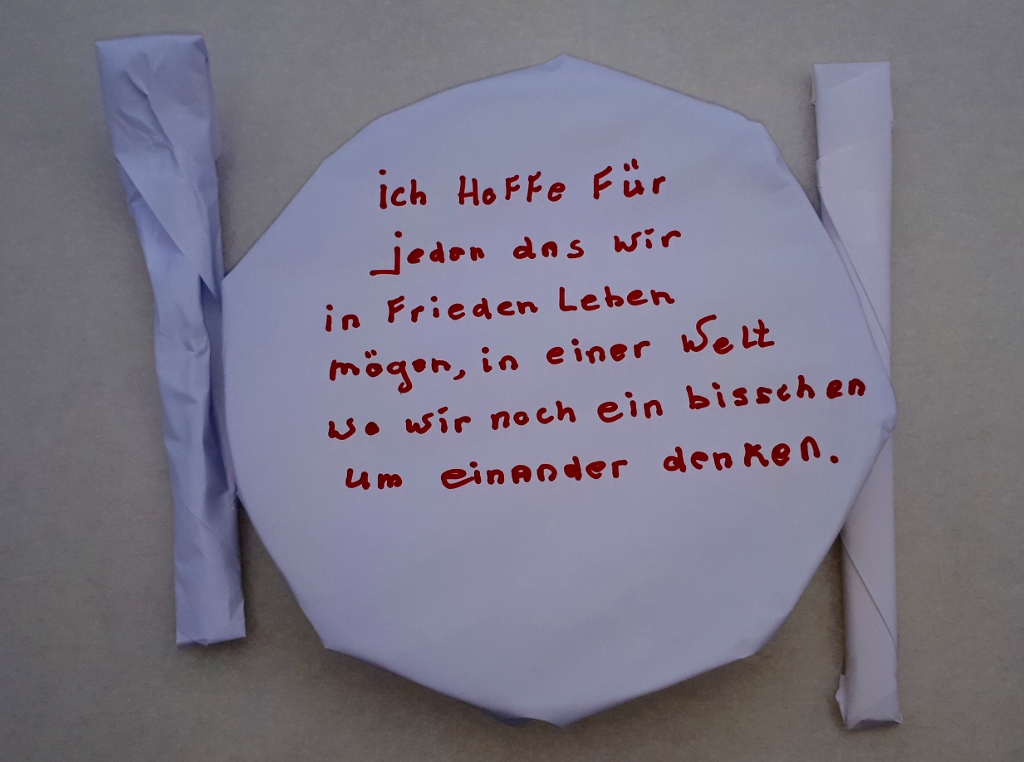 ich Hoffe Für
jeden das wir
in Frieden Leben
mögen, in einer Welt
wo wir noch ein bisschen
um einander denken.